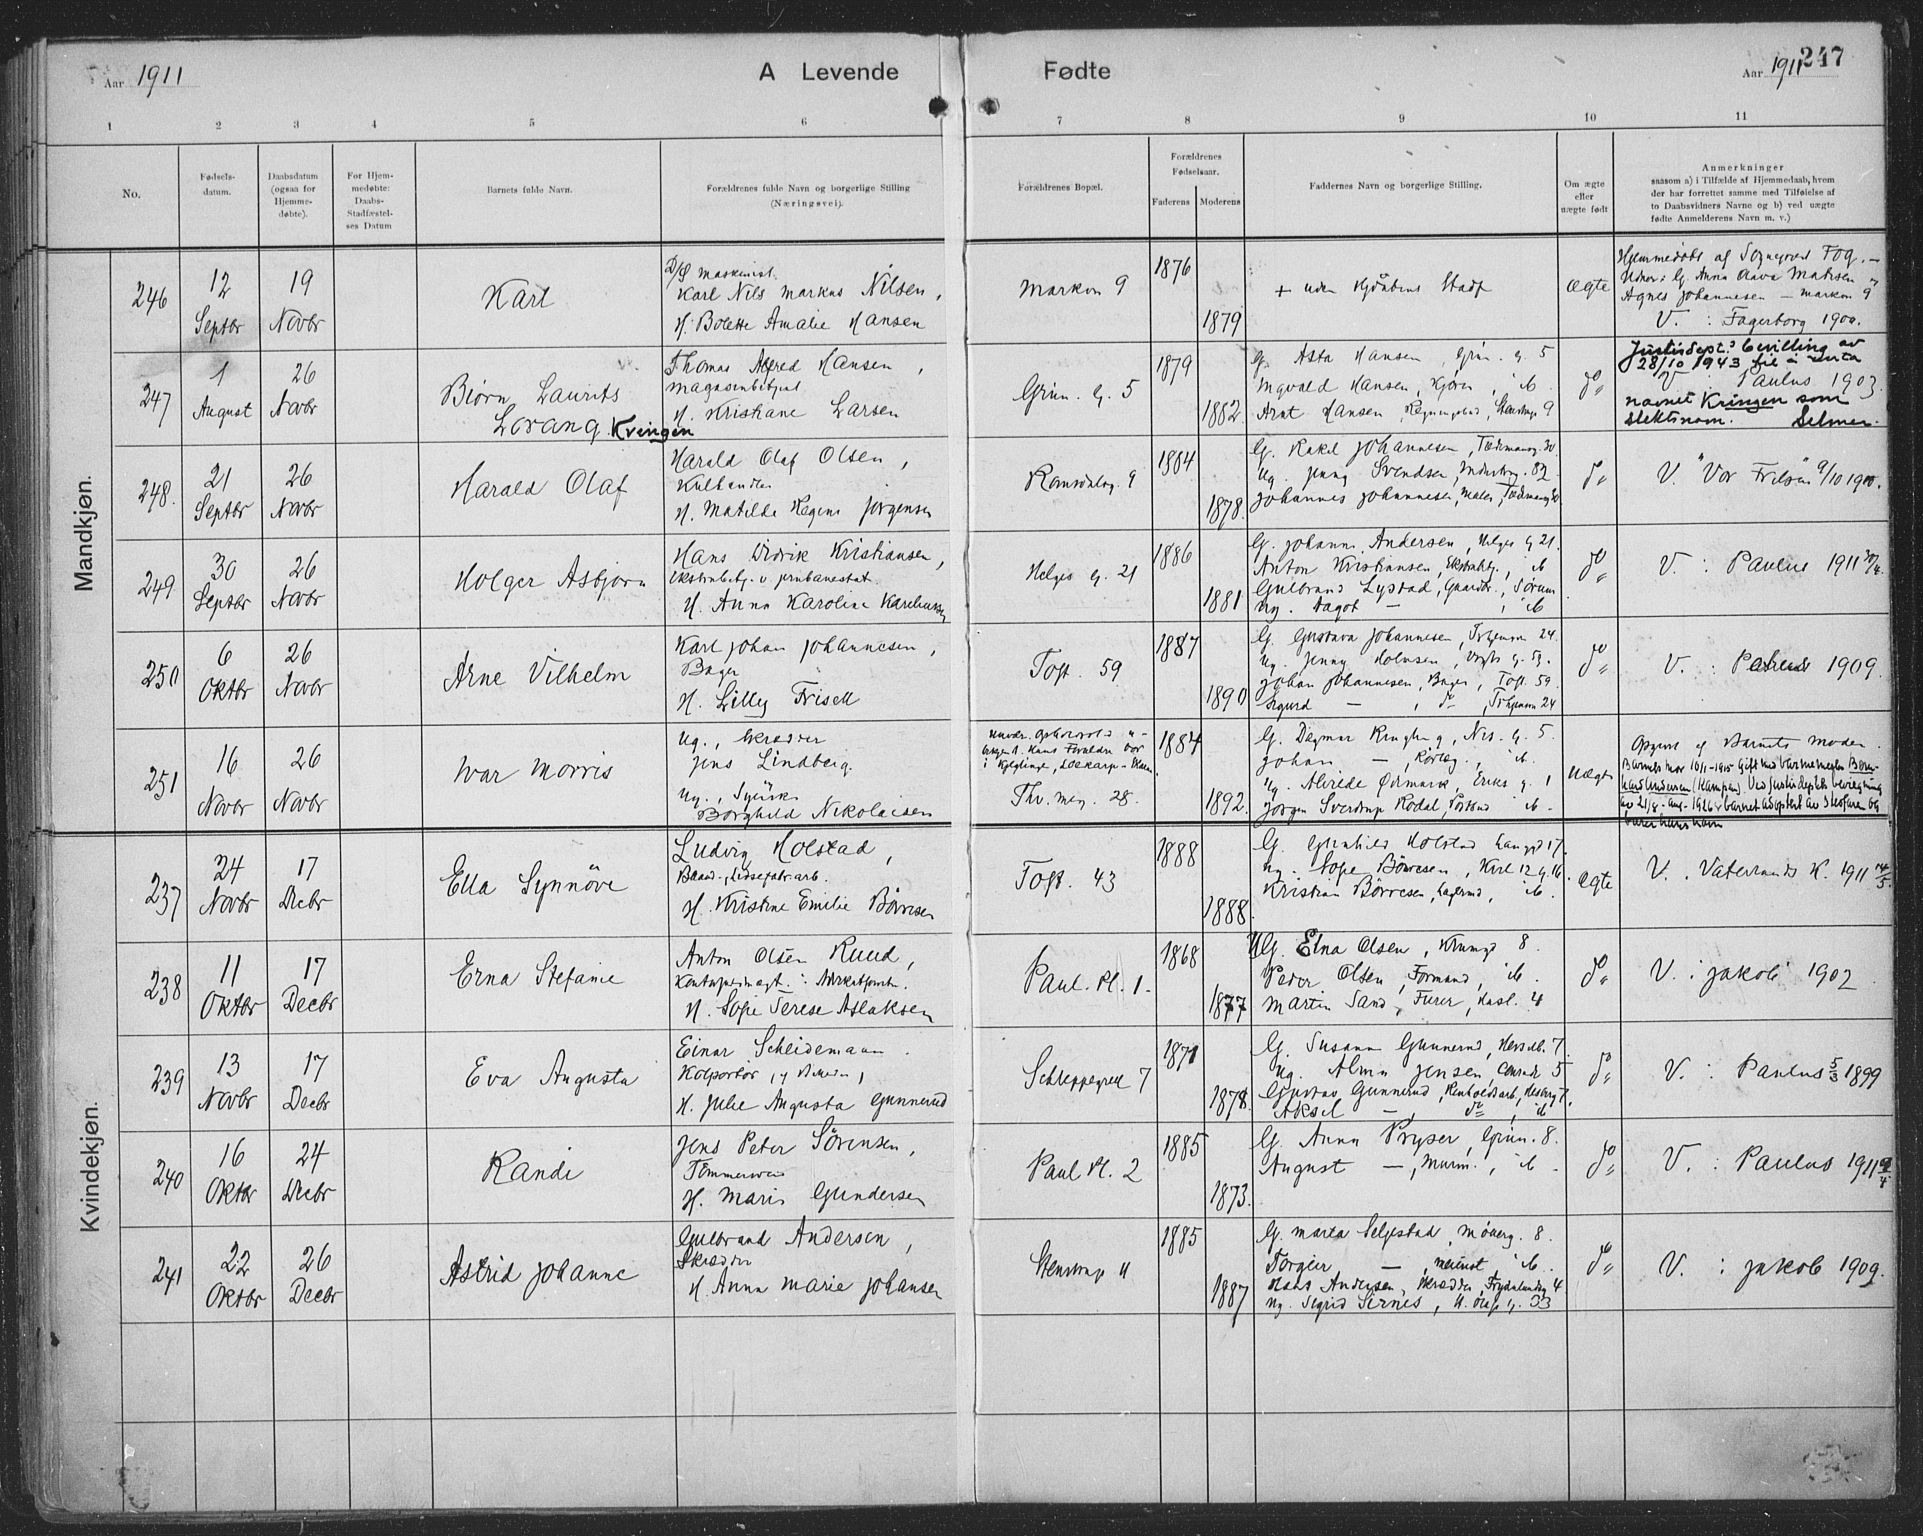 Aar 1911
A Levende
Fødte
Aar 1911
247
1 2 3 4 5 6 7 8 9 10 11
No.
Fødsels-
datum.
Daabsdatum
(ogsaa for
Hjemme-
døbte).
For Hjem-
medøbte:
Daabs-
Stadfæstel-
ses Datum
Barnets fulde Navn.
Forældrenes fulde Navn og borgerlige Stilling
(Næringsvei).
Forældrenes Bopæl.
Forældrenes
Fødselsaar.
Faderens
Moderens
Faddernes Navn og borgerlige Stilling.
Om ægte
eller
uægte født
Anmerkninger
saasom a) i Tilfælde af Hjemmedaab, hvem
der har forrettet samme med Tilføielse af
to Daabsvidners Navne og b) ved uægte
fødte Anmelderens Navn m. v.)
Mandkjøn.
246
12
Septbr
19
Novbr
Karl
D/S maskinist.
Karl Nils Markus Nilsen,
H. Bolette Amalie Hansen
Markvn 9
1876
1879
+ uden Kirkens Stadf
Ægte
Hjemmedøbt af Sognepræst Fog. -
Agnes Johannesen - Markvn 9
V. : Fagerborg 1900.
247
1
August
26
Novbr
Biørn Laurits
Lorang Kringen
Thomas Alfred Hansen,
Magasinbetjent
H. Kristiane Larsen
Grün. g. 5
1879
1882
G. Asta Hansen, Grün. g. 5
Ingvald Hansen, Kjøren, ib
Arnt Hansen, Stenstrup 9
do
Justisdept.s bevilling av
28/10 1943 til å anta
V. Paulus 1903.
navnet Kringen som
slektsnavn. Selmer.
248.
21
Septbr
26
Novbr
Harald Olaf
Harald Olaf Olsen,
Kulhandler
H. Matilde Regine Jørgensen
Romsdalsg 9
1884
1878.
G. Rakel Johannesen, Tidemansg. 30
Ug. Jenny Svendsen, Industrig. 82
Johannes Johannesen, Maler, Tidemansg 30
do
V. "Vor Frelser" 9/10 1900.
249
30
Septbr
26
Novbr
Holger Asbjørn
Hans Didrik Kristiansen,
Ekstrabetj. v. Jernbanestat.
H. Anna Karoline Karlsen
Helges g. 21
1886
1881
G. Johanne Andersen, Helges g 21.
Anton Kristiansen, Ekstrabtj., ib
Gulbrand Lystad, Gaardbr., Sørum
Ug. Dagot - , ib
do
V. : Paulus 1911 30/4.
250
6
Oktbr
26
Novbr
Arne Vilhelm
Karl Johan Johannesen,
Bager
H. Lilly Frisell
Toft. 59
1887
1890
G. Gustava Johannesen, 24.
Ug. Jenny Holmsen, Vogts g. 53.
Johan Johannesen, Bager, Toft. 59
Sigurd - , do, 24
do
V. : Petrus 1909.
251
16
Novbr
26
Novbr
Ivar Morris
Ug., Skrædder
Jens Lindberg.
Ug., Syerske
Borghild Nikolaisen
Thv. Mey. 28.
1884
1892.
G. Dagmar Ringberg, Nis. g. 5
Johan - , ib.
Ug. Alvilde Ødemark, Eriks g. 1
Jørgen Sverdrup Rodal, Postbud ib -
Uægte
Opgivet af Barnets Moder.
Barnets mor 10/11-1915 gift med varmemester Bern-
hard Andersen (Kampen). Ved Justisdeptets bevilgning
av 21/8-aug-1926 er barnet adoptert av stefaren og
bærer hans navn
Kvindekjøn.
237
24
Novbr
17
Decbr
Ella Synnöve
Ludvig Holstad,
H. Kristine Emilie Børresen
Toft. 43
1888
1888.
G. Gunhild Holstad Langgd 17.
Ug. Sofie Børresen, Karl 12 g. 16
Kristian Børresen, Lagermd, ib.
Ægte
V. . Vaterlands K. 1911 14/5.
238
11
Oktbr
17
Decbr
Erna Stefanie
Anton Olsen Ruud,
H. Sofie Terese Aslaksen
Paul. Pl. 1-
1868
1877
UG. Elna Olsen, Krumgd 8.
Peder Olsen, Formand, ib.
Martin Sand, Furer, Hasl. 4
do
V. : Jakob 1902.
239
13
Novbr
17
Decbr
Eva Augusta
Einar Scheidemann.
Kolportør,
H. Julie Augusta Gunnerud
Schleppegrell 7
1871
1878.
G. Susann Gunnerud, Herslb. 7.
Ug. Alma Jensen, Conradi 5
Gustav Gunnerud, Renholdsarb, Hersleg 7.
Aksel - , do, ib
do
V. : Paulus 5/3 1899
240
16
Oktbr
24
Decbr
Randi
Jens Peter Sörensen,
Tømmermand
H. Marie Gundersen
Paul Pl. 2
1885
1873.
G. Anna Pryser, Grün. 8.
August - , Murm., ib -
do
V. : Paulus 1911 9/4
241
22
Oktbr
26
Decbr
Astrid Johanne
Gulbrand Andersen,
Skrædder
H. Anna Marie Johansen
Stenstrup 11
1885
1887
G. Marta Seljestad, Møllerg. 8.
Torgeir - , ib.
Hans Andersen, Skrædder, Frydenlundsg 4
Ug. Sigrid Sirnes, U. Olufs g. 33
do
V. : Jakob 1909.